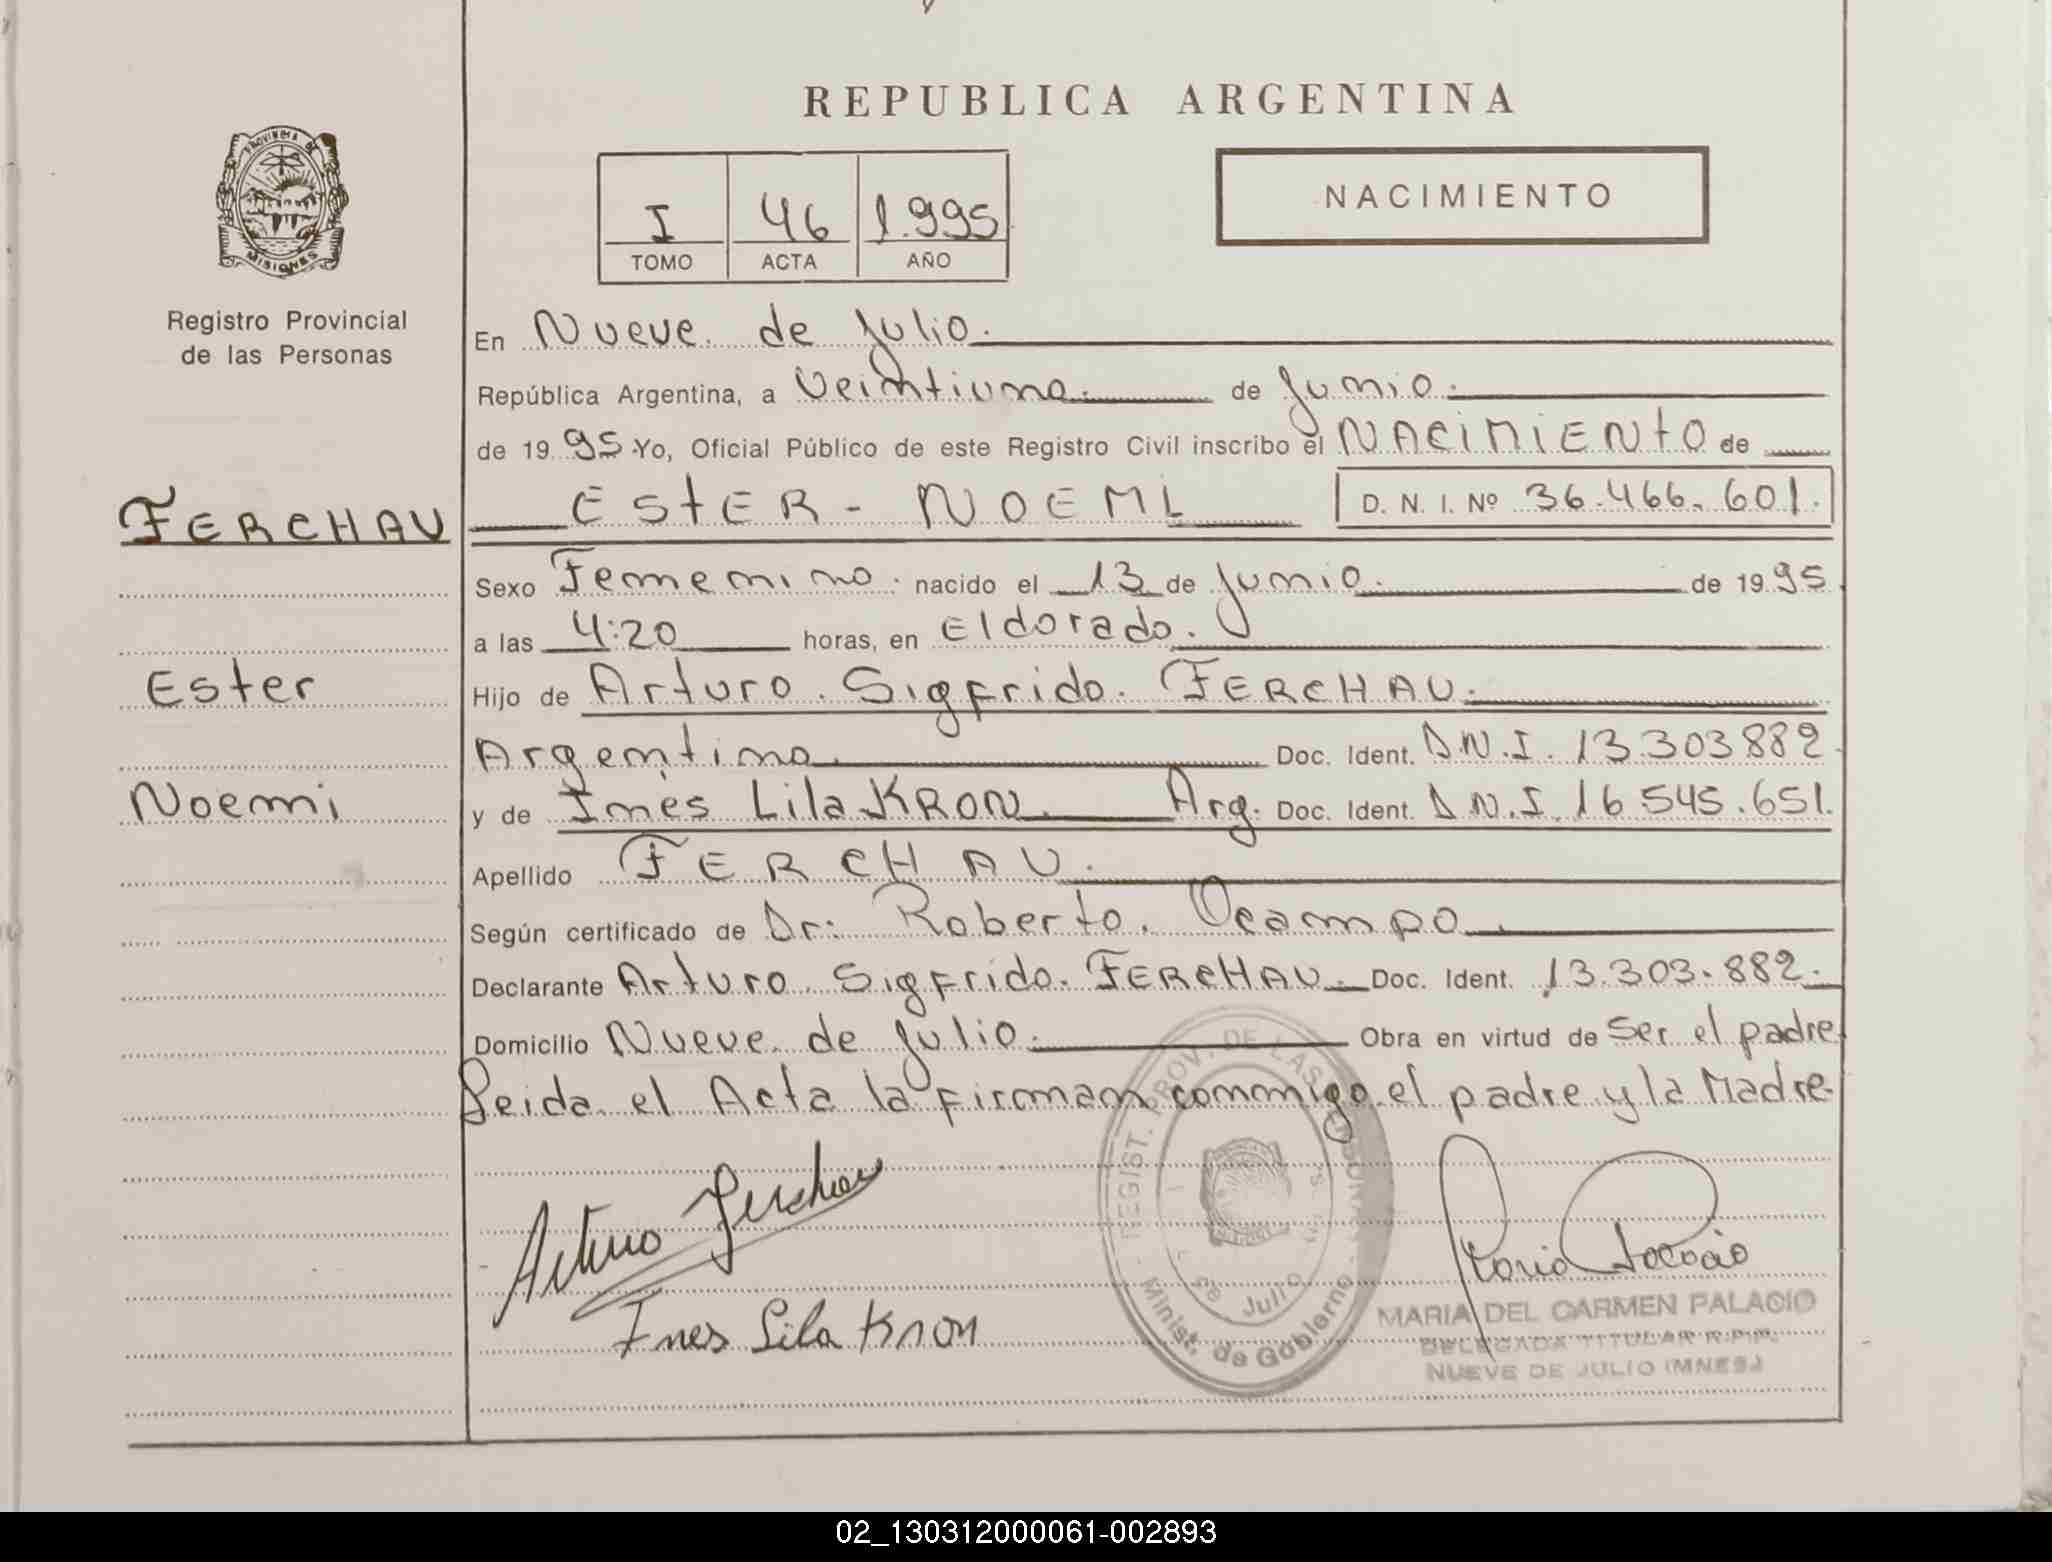 REPUBLICA ARGENTINA
PROVINCIA DE
MISIONES
Registro Provincial
de las Personas
I 46 1.995
TOMO ACTA AÑO
NACIMIENTO
En Nueve de Julio.
República Argentina, a Veintiuno. de Junio.
de 19 95 Yo, Oficial Público de este Registro Civil inscribo el NACIMIENTO de
FERCHAU
ESTER - NOEMI D. N. I. Nº 36.466.601.
Sexo Femenino. nacido el 13 de Junio. de 19 95
a las 4:20 horas, en Eldorado.
Ester
Hijo de Arturo Sigfrido FERCHAU.
Argentino Doc. Ident. D.N.I. 13.303882
Noemi
y de Ines Lila KRON. Arg. Doc. Ident. D.N.I. 16.545.651.
Apellido FERCHAU.
Según certificado de Dr: Roberto Ocampo
Declarante Arturo Sigfrido FERCHAU. Doc. Ident. 13.303.882.
Domicilio Nueve de Julio. Obra en virtud de ser el padre
Leida el Acta la firman conmigo el padre y la Madre.
REGIST. PROV. DE LAS PERSONAS
de Julio
Minist. de Gobierno
Arturo Ferchau
Ines Lila Kron
MARIA DEL CARMEN PALACIO
DELEGADA TITULAR R.P.P.
NUEVE DE JULIO (MNES.)
02_130312000061-002893